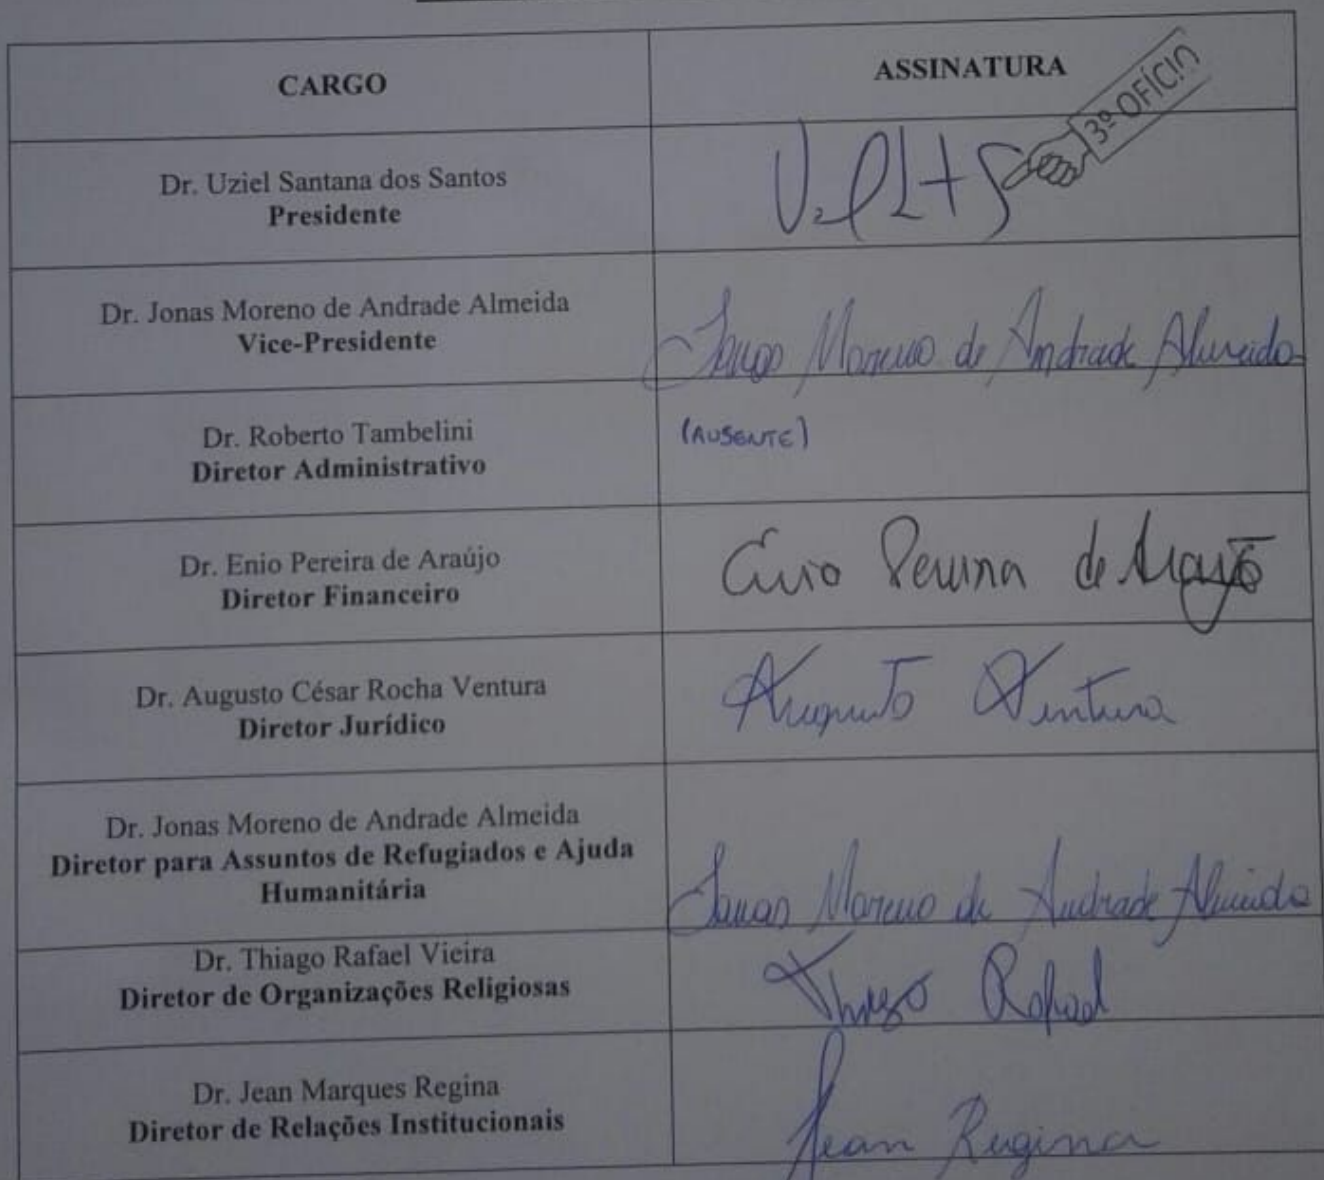 CARGO
ASSINATURA
3º OFÍCIO
Dr. Uziel Santana dos Santos
Presidente
Dr. Jonas Moreno de Andrade Almeida
Vice-Presidente
Jonas Moreno de Andrade Almeida
Dr. Roberto Tambelini
Diretor Administrativo
(AUSENTE)
Dr. Enio Pereira de Araújo
Diretor Financeiro
Enio Pereira de Araújo
Dr. Augusto César Rocha Ventura
Diretor Jurídico
Augusto Ventura
Dr. Jonas Moreno de Andrade Almeida
Diretor para Assuntos de Refugiados e Ajuda
Humanitária
Jonas Moreno de Andrade Almeida
Dr. Thiago Rafael Vieira
Diretor de Organizações Religiosas
Thiago Rafael
Dr. Jean Marques Regina
Diretor de Relações Institucionais
Jean Regina